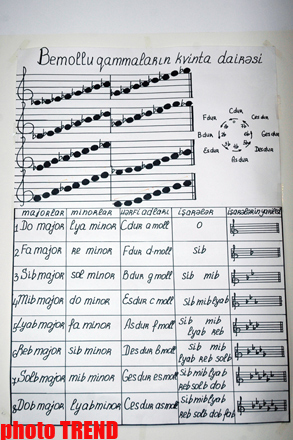 Bemollu qammaların kvinta dairəsi
Cdur
Fdur
Ces dur
Bdur
Ges dur
Es dur
Des dur
As dur
majorlar minorlar hərfi adları işarələr
1 Do major lya minor C dur a moll 0
2 Fa major re minor F dur d-moll sib
3 Sib major sol minor B dur g moll sib mib
4 Mib major do minor Es dur c moll sib mib lyab
Lyab major fa minor As dur f moll sib mib
lyab reb
Reb major sib minor Des dur b moll sib mib
lyab reb solb
7 Solb major mib minor Ges dur es moll sib mib lyab
reb solb dob
8 Dob major lyab minor Ces dur as moll sib mib lyab
reb solb dob fab
photo TREND